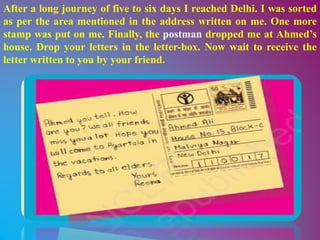 After a long journey of five to six days I reached Delhi. I was sorted
as per the area mentioned in the address written on me. One more
stamp was put on me. Finally, the postman dropped me at Ahmed's
house. Drop your letters in the letter-box. Now wait to receive the
letter written to you by your friend.
Ahmed you tell. How
are you? We all friends
miss you a lot. Hope you
will come to Agartala in
the vacations.
Regards to all elders.
Yours
Reena
Ahmed Ali
House No. 15, Block-C
Malviya Nagar
New Delhi
110017